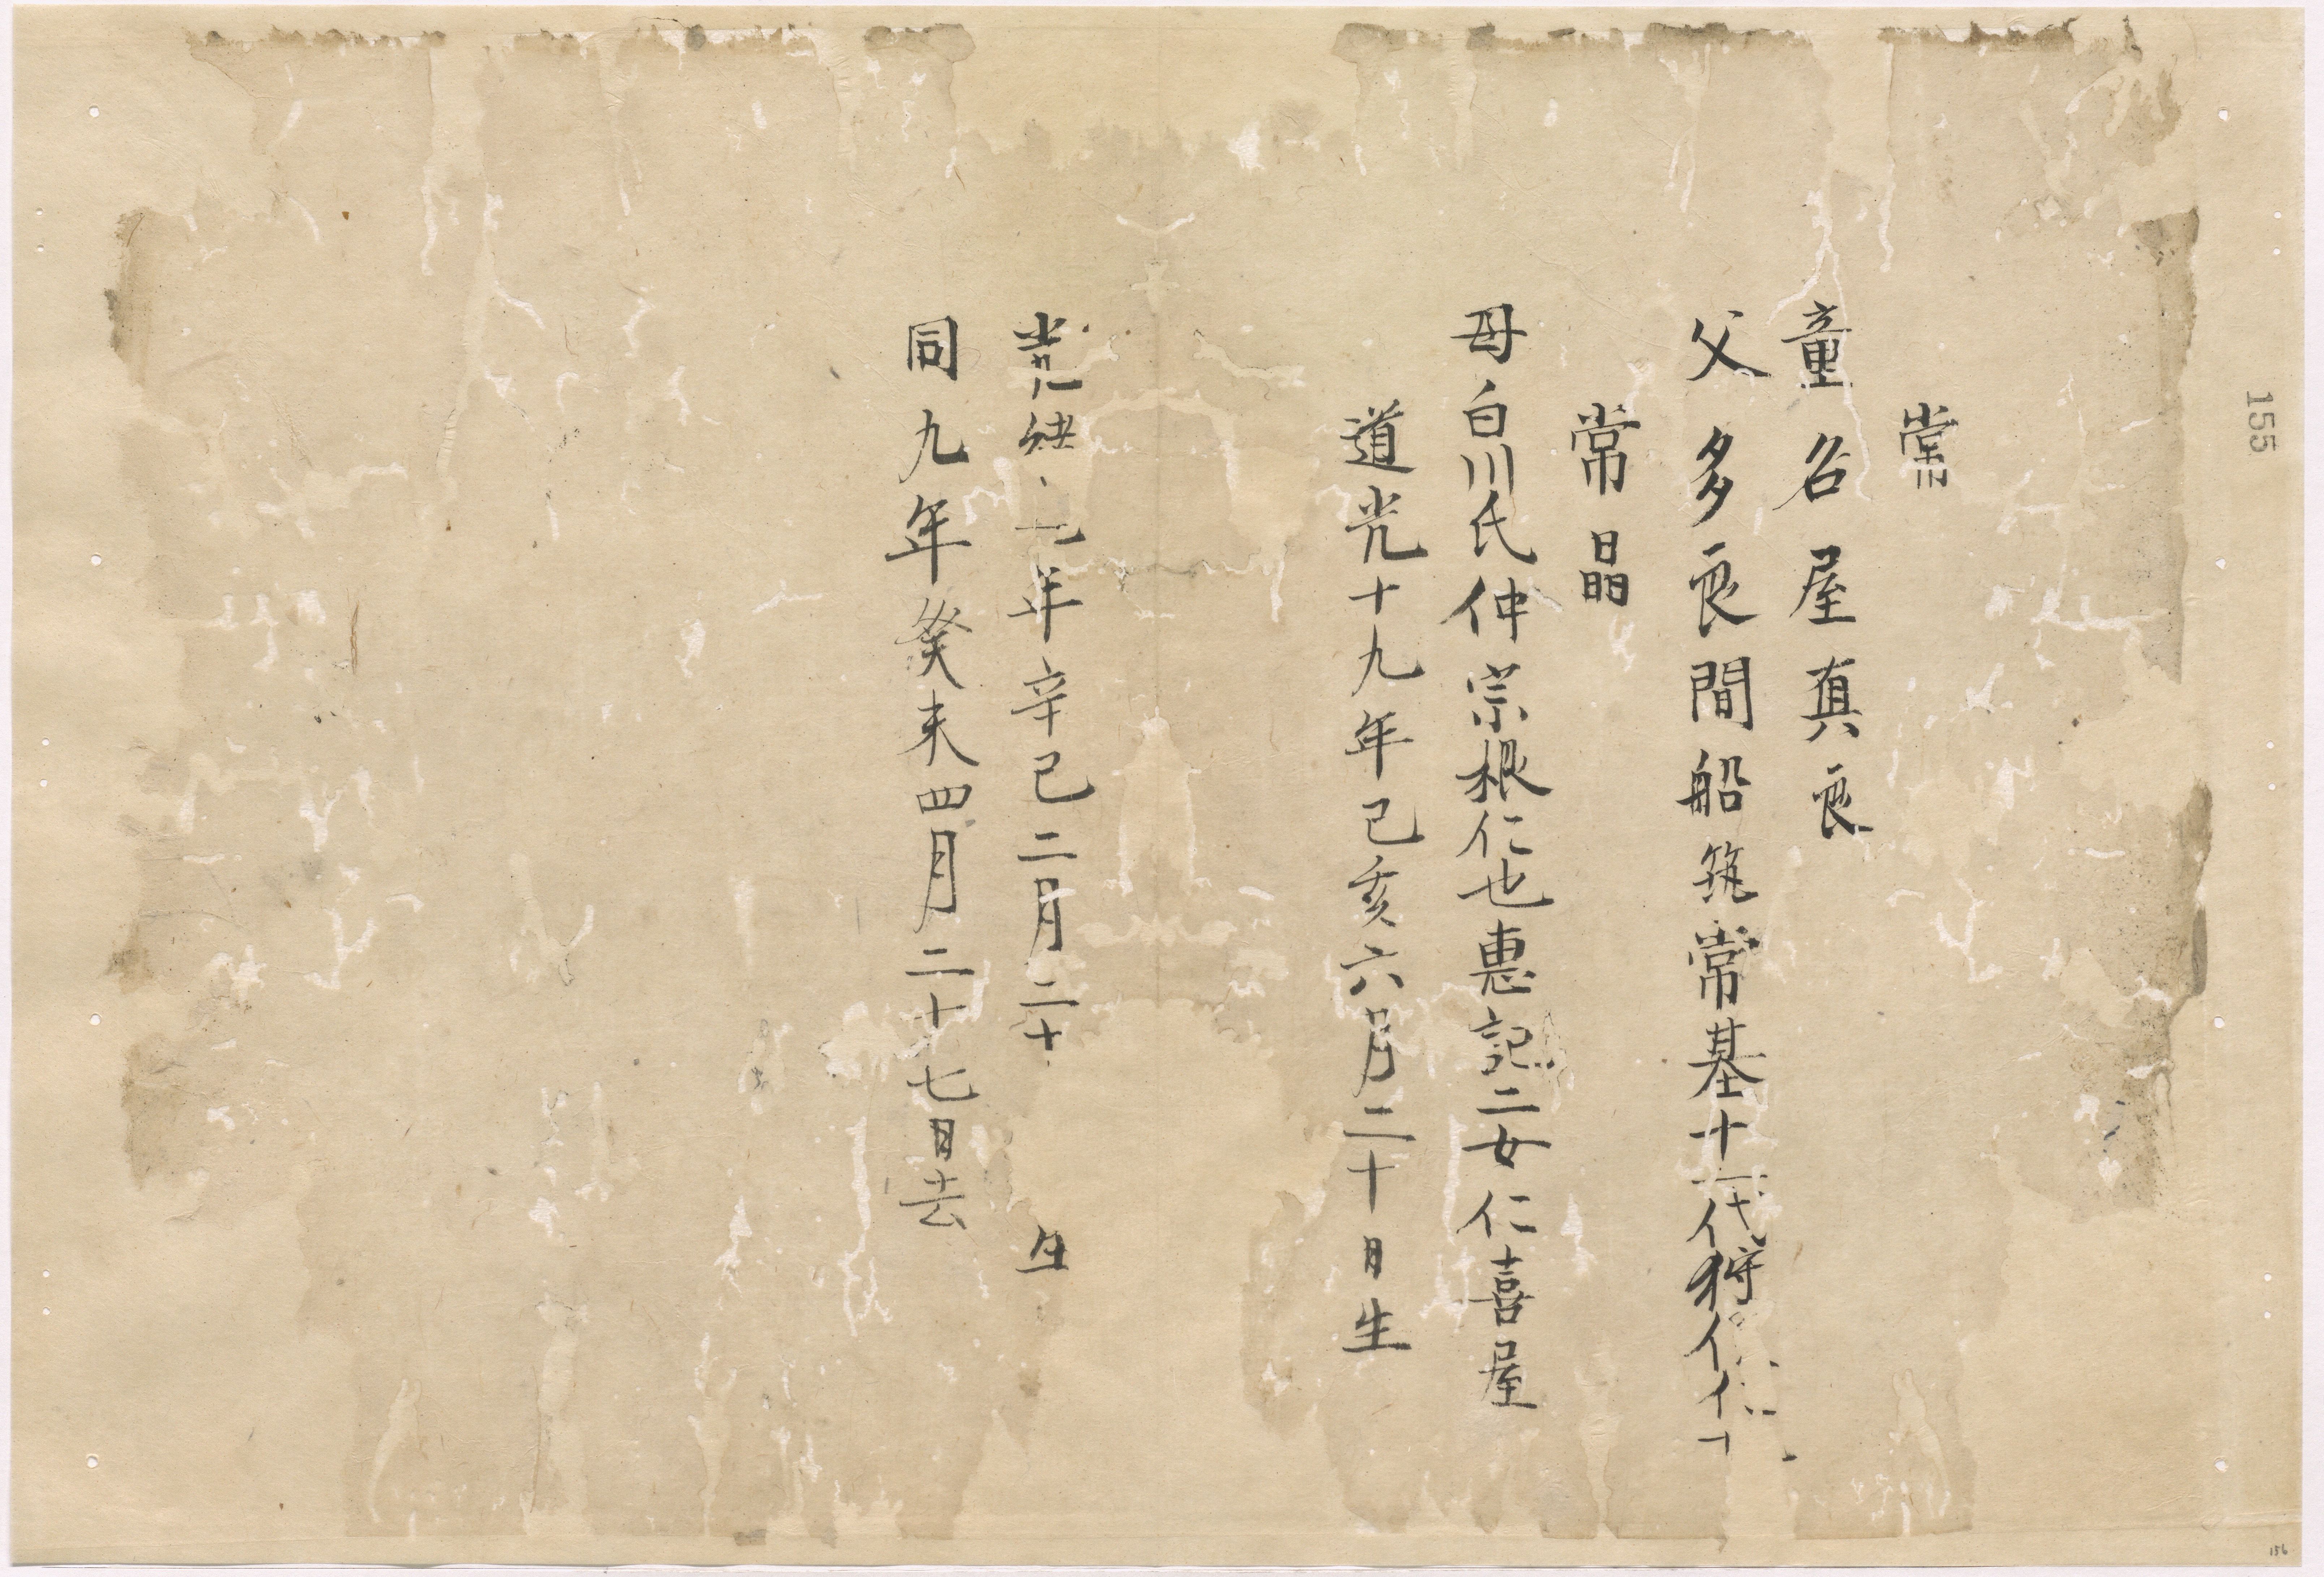 155
常
童名屋真良
父多良間船筑常基十一代狩
常晶
母白川氏仲宗根仁也惠記二女仁喜屋
道光十九年己亥六月二十日生
光緒七年辛巳二月二十 生
同九年癸未四月二十七日去
156